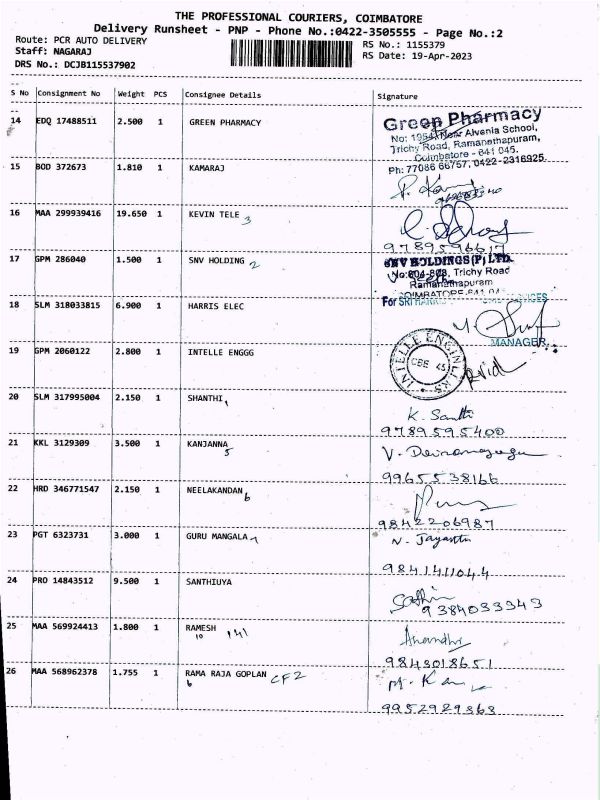 THE PROFESSIONAL COURIERS, COIMBATORE
Delivery Runsheet - PNP - Phone No.:0422-3505555 - Page No.:2
Route: PCR AUTO DELIVERY
Staff: NAGARAJ
DRS No.: DCJB115537902
RS No.: 1155379
RS Date: 19-Apr-2023
S No Consignment No Weight PCS Consignee Details Signature
14 EDQ 17488511 2.500 1 GREEN PHARMACY
Green Pharmacy
No: 195A, Near Alvenia School,
Trichy Road, Ramanathapuram,
Coimbatore - 641 045.
Ph: 77086 66757, 0422-2316925.
15 BOD 372673 1.810 1 KAMARAJ
16 MAA 299939416 19.650 1 KEVIN TELE 3
9789596617
17 GPM 286040 1.500 1 SNV HOLDING 2
SNV HOLDINGS (P) LTD.
Trichy Road
Ramanathapuram
18 SLM 318033815 6.900 1 HARRIS ELEC
For SRI
MANAGER
19 GPM 2060122 2.800 1 INTELLE ENGGG
INTELLE ENGINEERS
CBE 45
20 SLM 317995004 2.150 1 SHANTHI
K. Santhi
9789595400
21 KKL 3129309 3.500 1 KANJANNA 5
9965538166
22 HRD 346771547 2.150 1 NEELAKANDAN 6
9842206987
23 PGT 6323731 3.000 1 GURU MANGALA
N. Jayanthi
9841411044
24 PRO 14843512 9.500 1 SANTHIUYA
9384033343
25 MAA 569924413 1.800 1 RAMESH 10 141
Anandhi
9843018651
26 MAA 568962378 1.755 1 RAMA RAJA GOPLAN 6 CF2
9952929868